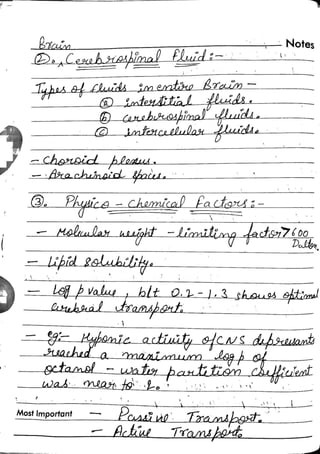 Brain
Notes
②. Cerebrospinal Fluid :-
Types of fluids in entire Brain -
ⓐ interstitial fluids.
ⓑ cerebrospinal fluids.
ⓒ Intercellular fluids.
- Choroid plexus.
- Arachinoid spaces.
③. Physico - Chemical Factors :-
- Molecular weight - limiting factor 7600
Dalton.
- Lipid solubility.
- Log p value, b/t 0.2 - 1.3 shows optimal
cerebral transport.
eg:- Hypnotic activity of CNS depressants
reached a maximum log p of
octanol - water partition coefficient
was near to 2.
Most Important
- Passive Transport.
- Active Transport.